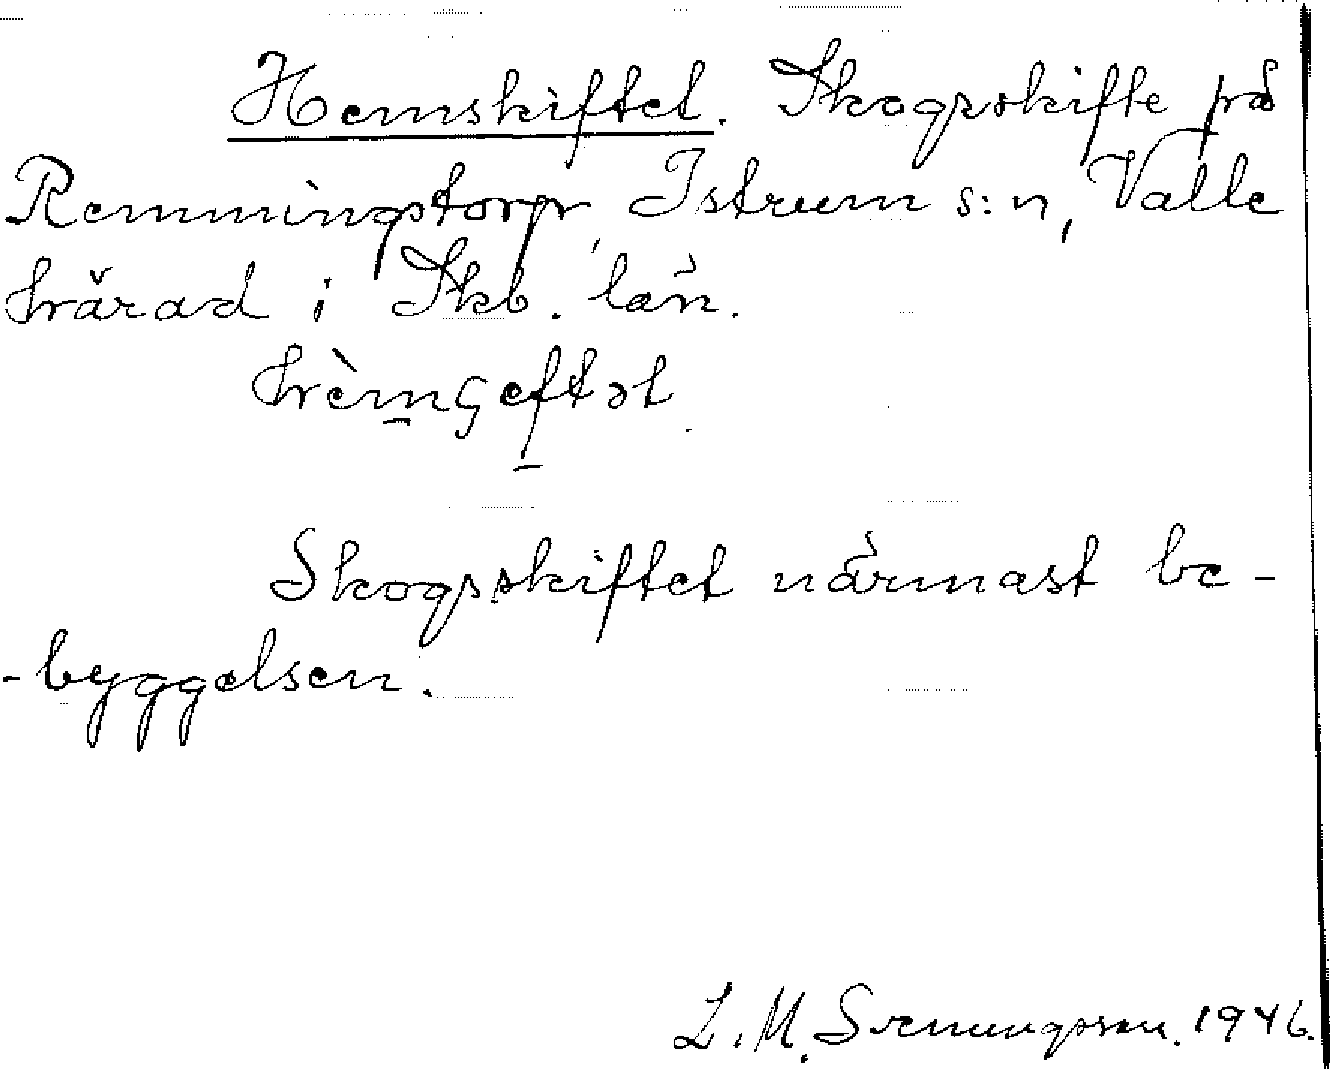 Hemskiftet. Skogsskifte på
Remmingstorp, Istrum s:n, Valle
härad i Skb. län.
hèmçeftət
Skogsskiftet närmast be-
-byggelsen.
L. M. Svenungsson. 1946.